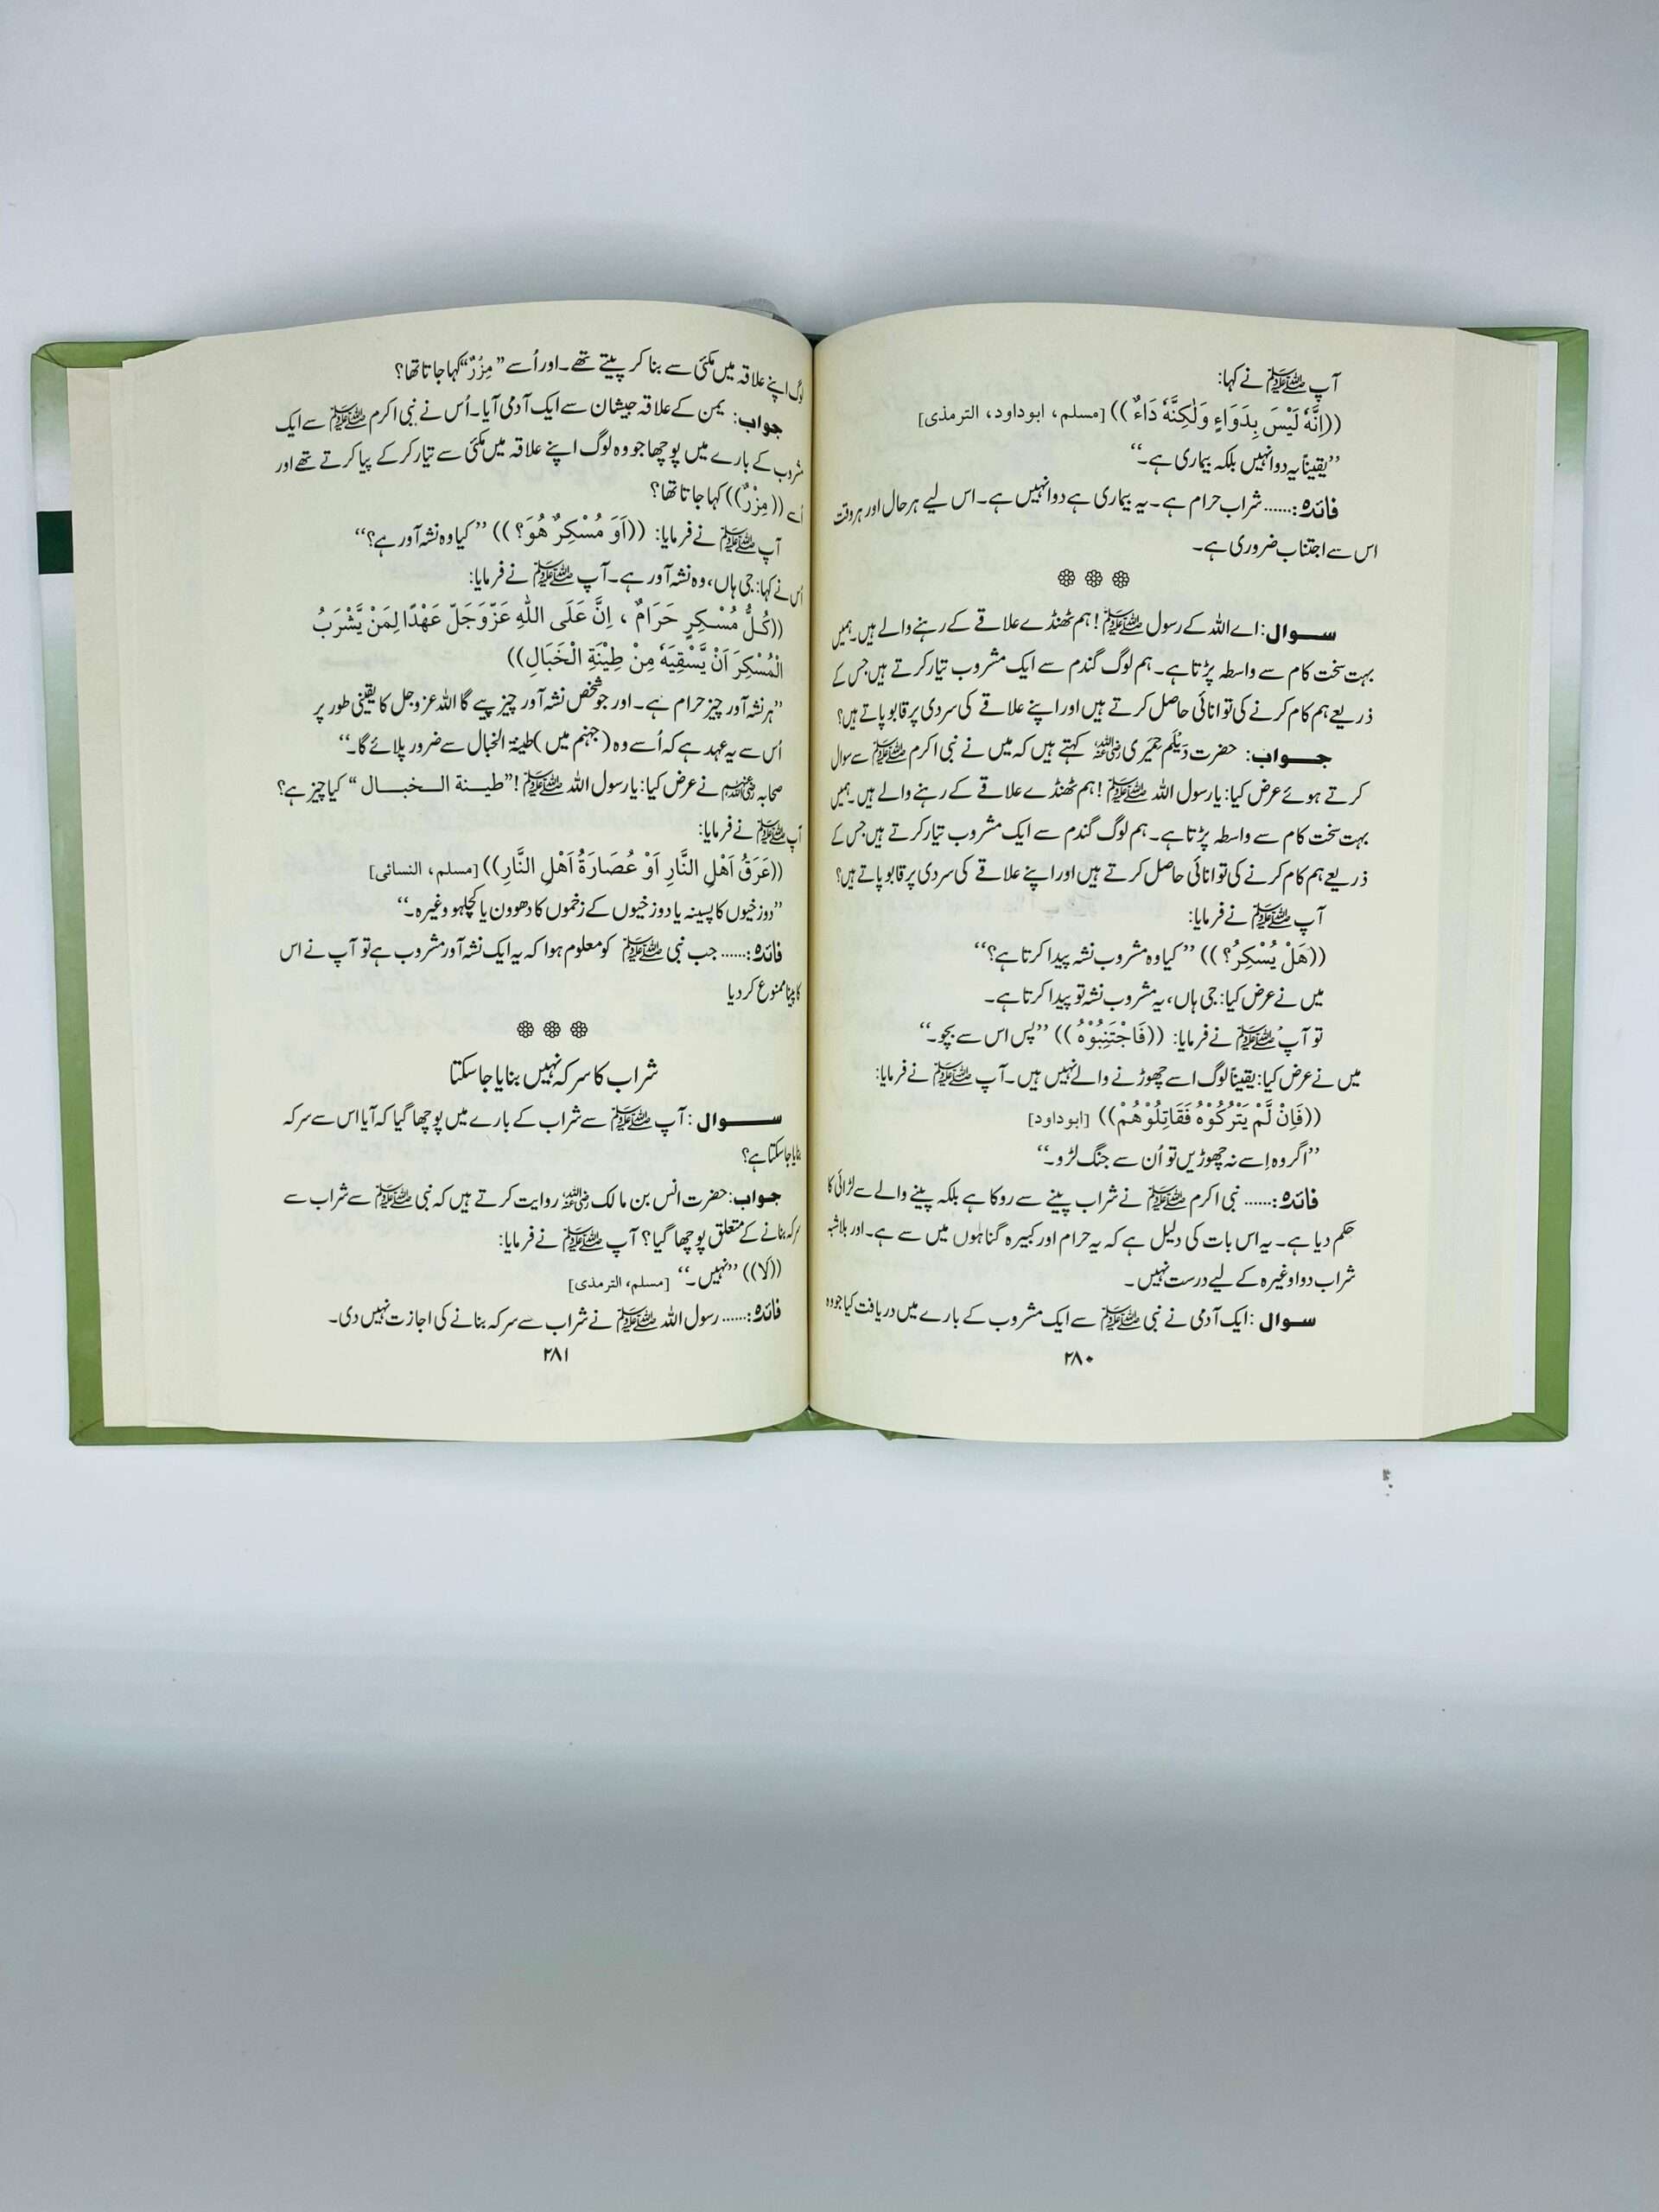 آپ ﷺ نے کہا:
((اِنَّهٗ لَيْسَ بِدَوَاءٍ وَلٰكِنَّهٗ دَاءٌ)) [مسلم، ابوداود، الترمذی]
”یقیناً یہ دوا نہیں بلکہ بیماری ہے۔“
فائدہ:...... شراب حرام ہے۔ یہ بیماری ہے دوا نہیں ہے۔ اس لیے ہر حال اور ہر وقت
اس سے اجتناب ضروری ہے۔
سوال: اے اللہ کے رسول ﷺ! ہم ٹھنڈے علاقے کے رہنے والے ہیں۔ ہمیں
بہت سخت کام سے واسطہ پڑتا ہے۔ ہم لوگ گندم سے ایک مشروب تیار کرتے ہیں جس کے
ذریعے ہم کام کرنے کی توانائی حاصل کرتے ہیں اور اپنے علاقے کی سردی پر قابو پاتے ہیں؟
جواب: حضرت دَیْلَم حِمْیَری رضی اللہ عنہ کہتے ہیں کہ میں نے نبی اکرم ﷺ سے سوال
کرتے ہوئے عرض کیا: یا رسول اللہ ﷺ! ہم ٹھنڈے علاقے کے رہنے والے ہیں۔ ہمیں
بہت سخت کام سے واسطہ پڑتا ہے۔ ہم لوگ گندم سے ایک مشروب تیار کرتے ہیں جس کے
ذریعے ہم کام کرنے کی توانائی حاصل کرتے ہیں اور اپنے علاقے کی سردی پر قابو پاتے ہیں؟
آپ ﷺ نے فرمایا:
((هَلْ يُسْكِرُ؟)) ”کیا وہ مشروب نشہ پیدا کرتا ہے؟“
میں نے عرض کیا: جی ہاں، یہ مشروب نشہ تو پیدا کرتا ہے۔
تو آپ ﷺ نے فرمایا: ((فَاجْتَنِبُوْهُ)) ”پس اس سے بچو۔“
میں نے عرض کیا: یقیناً لوگ اسے چھوڑنے والے نہیں ہیں۔ آپ ﷺ نے فرمایا:
((فَاِنْ لَّمْ يَتْرُكُوْهُ فَقَاتِلُوْهُمْ)) [ابوداود]
”اگر وہ اِسے نہ چھوڑیں تو اُن سے جنگ لڑو۔“
فائدہ:...... نبی اکرم ﷺ نے شراب پینے سے روکا ہے بلکہ پینے والے سے لڑائی کا
حکم دیا ہے۔ یہ اس بات کی دلیل ہے کہ یہ حرام اور کبیرہ گناہوں میں سے ہے۔ اور بلاشبہ
شراب دوا وغیرہ کے لیے درست نہیں۔
سوال: ایک آدمی نے نبی ﷺ سے ایک مشروب کے بارے میں دریافت کیا جو وہ
۲۸۰
لوگ اپنے علاقہ میں مکئی سے بنا کر پیتے تھے۔ اور اُسے ”مِزْرٌ“ کہا جاتا تھا؟
جواب: یمن کے علاقہ جیشان سے ایک آدمی آیا۔ اُس نے نبی اکرم ﷺ سے ایک
مشروب کے بارے میں پوچھا جو وہ لوگ اپنے علاقہ میں مکئی سے تیار کر کے پیا کرتے تھے اور
اسے ((مِزْرٌ)) کہا جاتا تھا؟
آپ ﷺ نے فرمایا: ((اَوَ مُسْكِرٌ هُوَ؟)) ”کیا وہ نشہ آور ہے؟“
اُس نے کہا: جی ہاں، وہ نشہ آور ہے۔ آپ ﷺ نے فرمایا:
((كُلُّ مُسْكِرٍ حَرَامٌ ، اِنَّ عَلَى اللهِ عَزَّوَجَلَّ عَهْدًا لِمَنْ يَّشْرَبُ
الْمُسْكِرَ اَنْ يَّسْقِيَهٗ مِنْ طِيْنَةِ الْخَبَالِ))
”ہر نشہ آور چیز حرام ہے۔ اور جو شخص نشہ آور چیز پیے گا اللہ عزوجل کا یقینی طور پر
اُس سے یہ عہد ہے کہ اُسے وہ (جہنم میں) طینۃ الخبال سے ضرور پلائے گا۔“
صحابہ رضی اللہ عنہم نے عرض کیا: یا رسول اللہ ﷺ! ”طینۃ الخبال“ کیا چیز ہے؟
آپ ﷺ نے فرمایا:
((عَرَقُ اَهْلِ النَّارِ اَوْ عُصَارَةُ اَهْلِ النَّارِ)) [مسلم، النسائی]
”دوزخیوں کا پسینہ یا دوزخیوں کے زخموں کا دھوون یا کچلہو وغیرہ۔“
فائدہ:...... جب نبی ﷺ کو معلوم ہوا کہ یہ ایک نشہ آور مشروب ہے تو آپ نے اس
کا پینا ممنوع کر دیا
شراب کا سرکہ نہیں بنایا جا سکتا
سوال: آپ ﷺ سے شراب کے بارے میں پوچھا گیا کہ آیا اس سے سرکہ
بنایا جا سکتا ہے؟
جواب: حضرت انس بن مالک رضی اللہ عنہ روایت کرتے ہیں کہ نبی ﷺ سے شراب سے
سرکہ بنانے کے متعلق پوچھا گیا؟ آپ ﷺ نے فرمایا:
((لَا)) ”نہیں۔“ [مسلم، الترمذی]
فائدہ:...... رسول اللہ ﷺ نے شراب سے سرکہ بنانے کی اجازت نہیں دی۔
۲۸۱